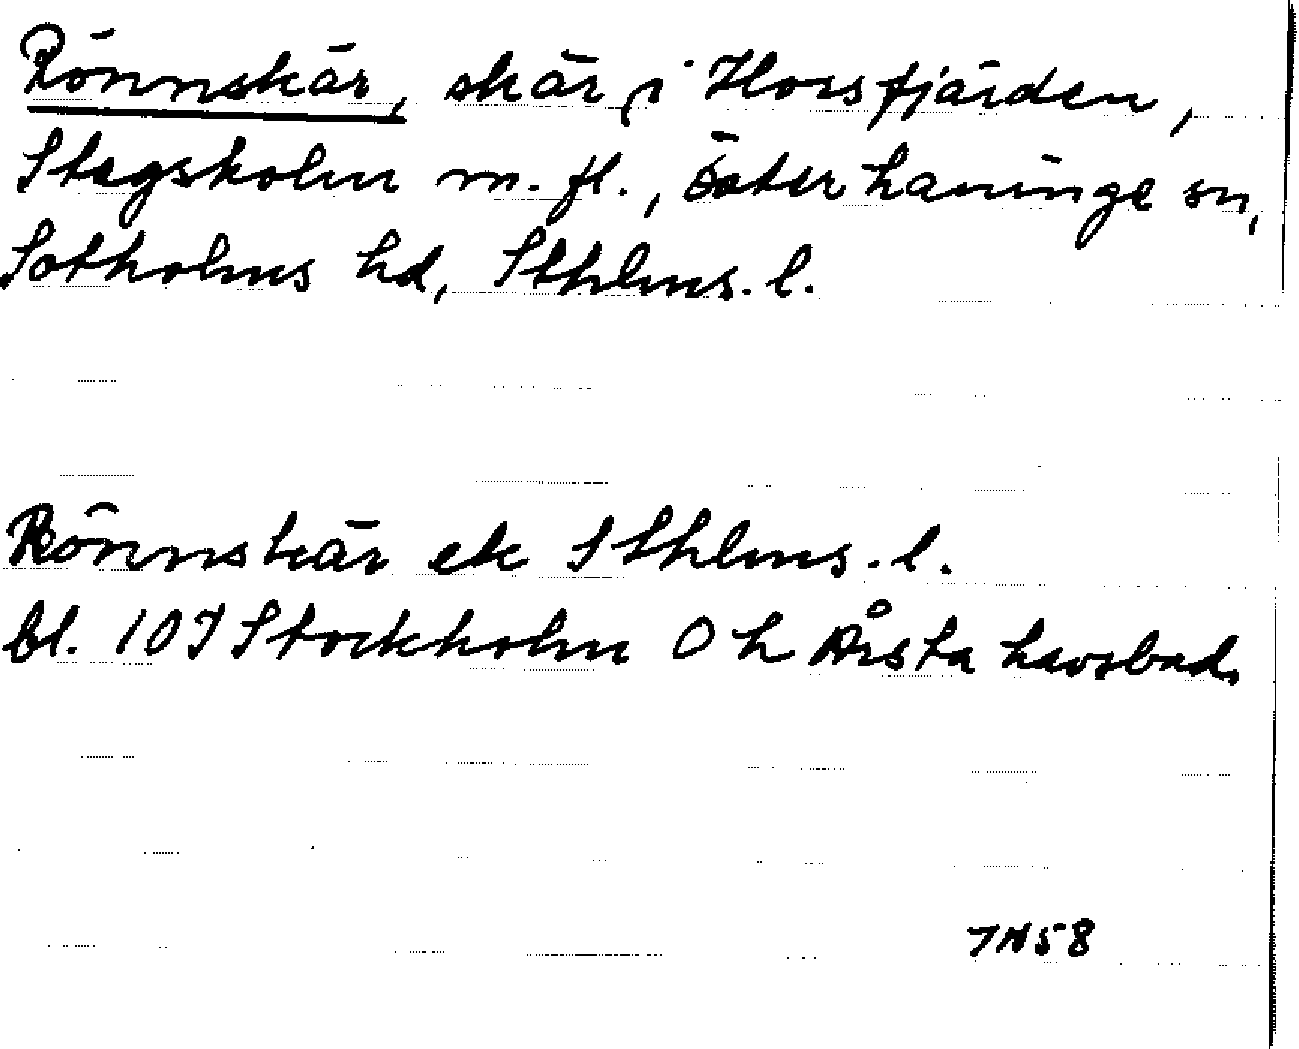 Rönnskär, skär i Horsfjärden,
Stegsholm m. fl., Österhaninge sn,
Sotholms hd, Sthlms. l.
Rönnskär ek Sthlms. l.
bl. 10 I Stockholm O h Årsta havsbad.
TN58